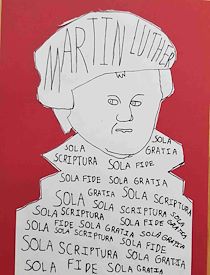 MARTIN LUTHER
SOLA SOLA
SCRIPTURA GRATIA
SOLA FIDE
SOLA FIDE SOLA GRATIA
GRATIA SOLA SCRIPTURA
SOLA SOLA SCRIPTURA SOLA
SCRIPTURA SOLA FIDE GRATIA
SOLA FIDE SOLA GRATIA SOLA GRATIA
SOLA SCRIPTURA SOLA FIDE
SOLA SCRIPTURA SOLA GRATIA
SOLA FIDE SOLA GRATIA